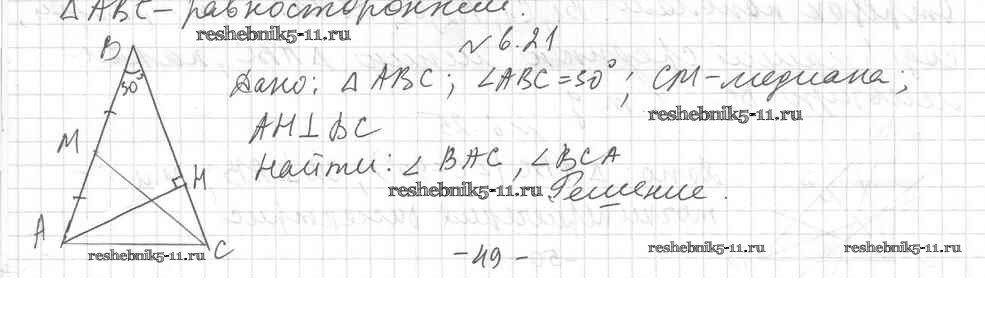 △ABC – равносторонний.
reshebnik5-11.ru
№ 6.21
Дано: △ ABC; ∠ABC = 30°; CM – медиана;
reshebnik5-11.ru
AH ⊥ BC
Найти: ∠ BAC, ∠BCA
reshebnik5-11.ru
Решение.
B
30°
M
H
A
C
reshebnik5-11.ru
– 49 –
reshebnik5-11.ru
reshebnik5-11.ru